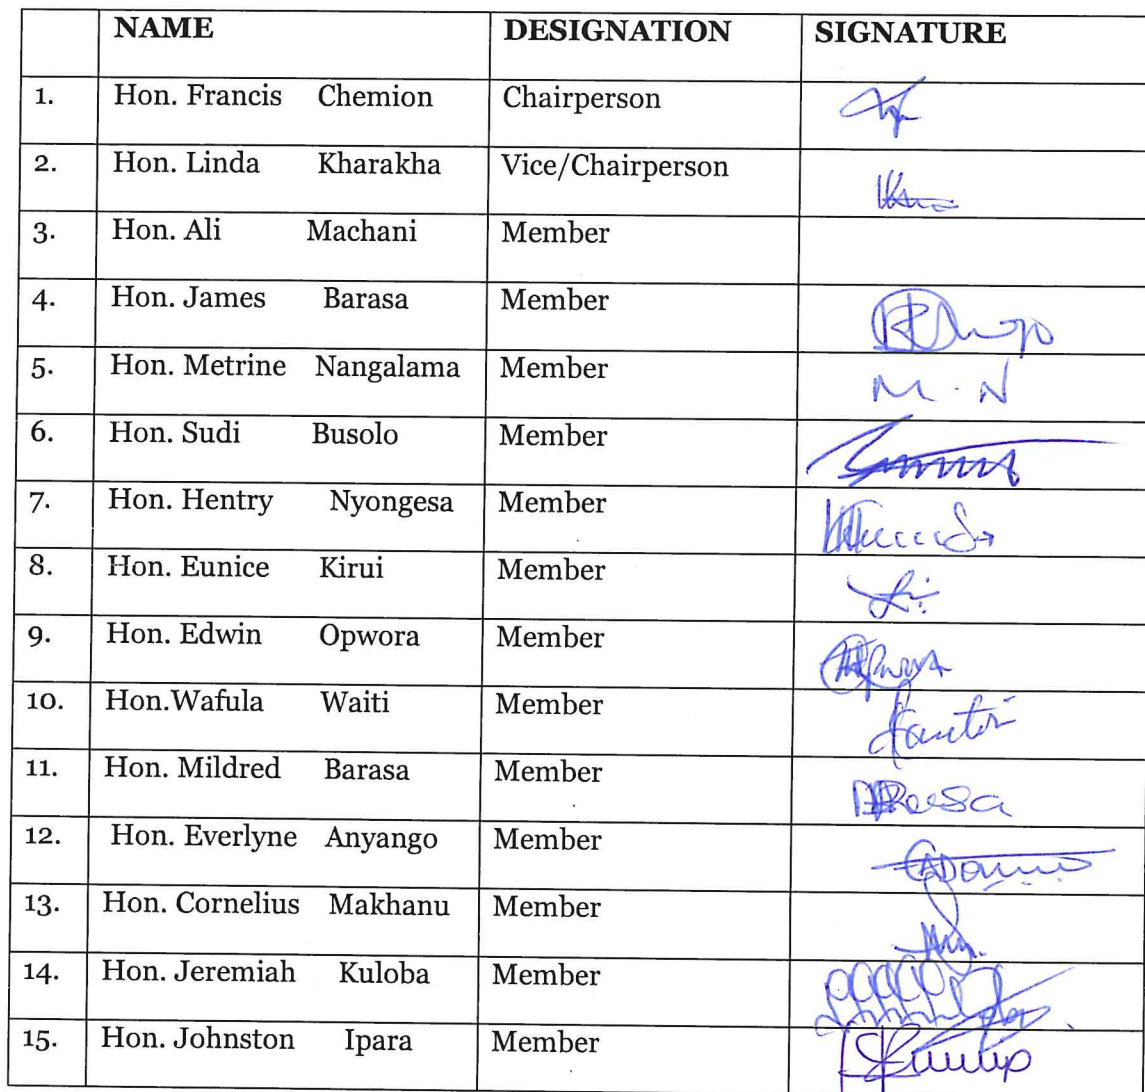 NAME DESIGNATION SIGNATURE
1. Hon. Francis Chemion Chairperson
2. Hon. Linda Kharakha Vice/Chairperson
3. Hon. Ali Machani Member
4. Hon. James Barasa Member
5. Hon. Metrine Nangalama Member M. N
6. Hon. Sudi Busolo Member
7. Hon. Hentry Nyongesa Member
8. Hon. Eunice Kirui Member
9. Hon. Edwin Opwora Member
10. Hon.Wafula Waiti Member
11. Hon. Mildred Barasa Member
12. Hon. Everlyne Anyango Member
13. Hon. Cornelius Makhanu Member
14. Hon. Jeremiah Kuloba Member
15. Hon. Johnston Ipara Member